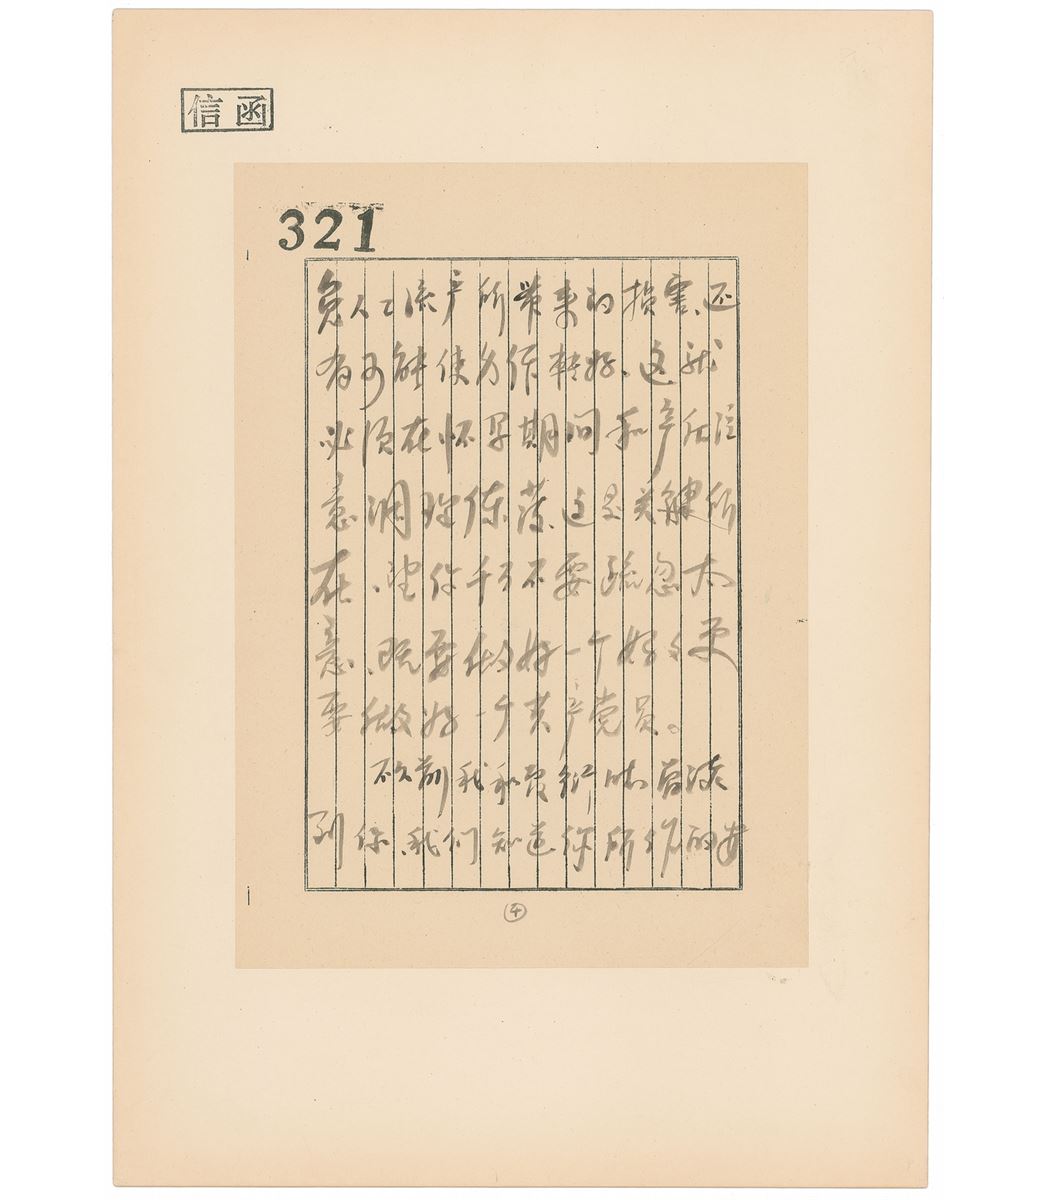 信函
321
免人工流产所带来的损害、还
有可能使劳作转好、这就
必须在怀孕期间和产后注
意调理休养、这是关键所
在、望你千万不要疏忽大
意、既要做好一个好女更
要做好一个共产党员。
不久前我和贤钊时曾谈
到你、我们知道你所作的
④